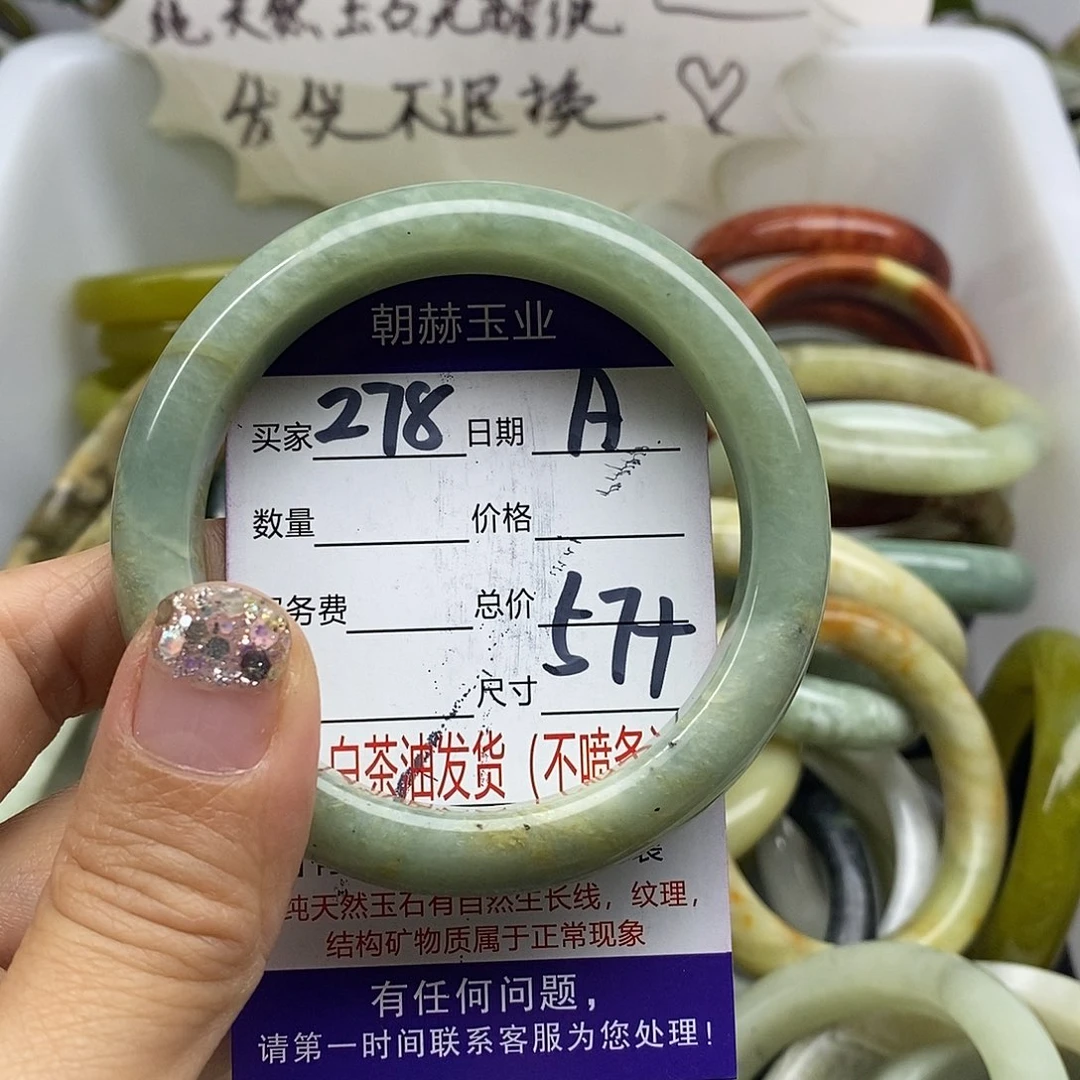 纯天然玉石无醒纹
售出不退换
朝赫玉业
买家 278 日期 A
数量 价格
务费 总价
尺寸 57H
白茶油发货（不喷备
装
纯天然玉石有自然生长线，纹理，
结构矿物质属于正常现象
有任何问题，
请第一时间联系客服为您处理！